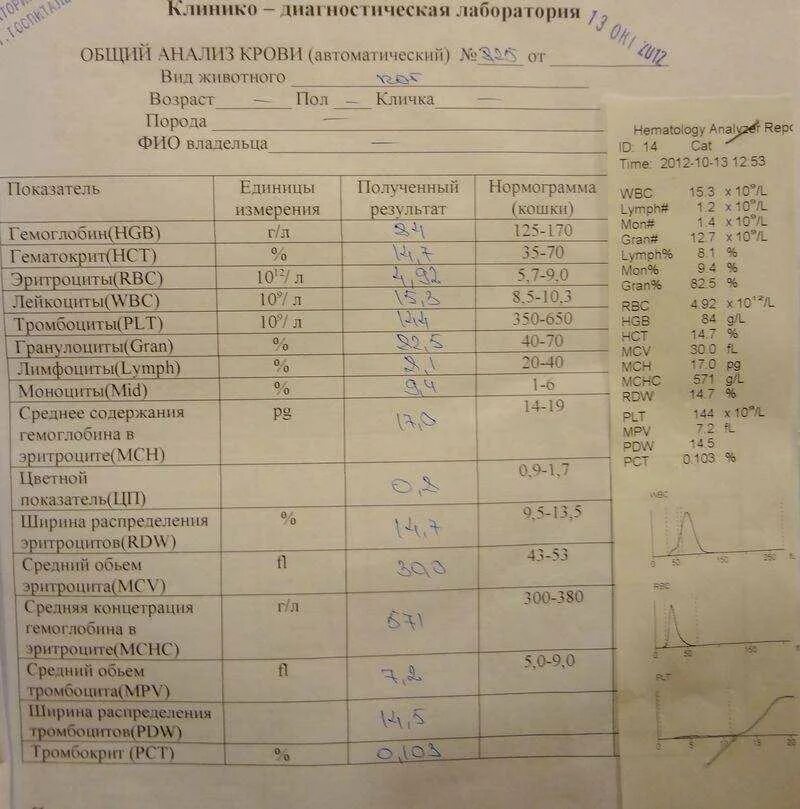 Клинико – диагностическая лаборатория
13 ОКТ 2012
ОБЩИЙ АНАЛИЗ КРОВИ (автоматический) № 325 от
Вид животного кот
Возраст — Пол — Кличка —
Порода —
ФИО владельца —
Показатель Единицы измерения Полученный результат Нормограмма (кошки)
Гемоглобин(HGB) г/л 84 125-170
Гематокрит(HCT) % 14,7 35-70
Эритроциты(RBC) 10¹²/ л 4,92 5,7-9,0
Лейкоциты(WBC) 10⁹/ л 15,3 8,5-10,3
Тромбоциты(PLT) 10⁹/ л 144 350-650
Гранулоциты(Gran) % 82,5 40-70
Лимфоциты(Lymph) % 8,1 20-40
Моноциты(Mid) % 9,4 1-6
Среднее содержания pg 17,0 14-19
гемоглобина в
эритроците(MCH)
Цветной 0,8 0,9-1,7
показатель(ЦП)
Ширина распределения % 14,7 9,5-13,5
эритроцитов(RDW)
Средний обьем fl 30,0 43-53
эритроцита(MCV)
Средняя концетрация г/л 571 300-380
гемоглобина в
эритроците(MCHC)
Средний обьем fl 7,2 5,0-9,0
тромбоцита(MPV)
Ширина распределения 14,5
тромбоцитов(PDW)
Тромбокрит (PCT) % 0,103
Hematology Analyzer Repo
ID: 14 Cat
Time: 2012-10-13 12:53
WBC 15.3 x 10⁹/L
Lymph# 1.2 x 10⁹/L
Mon# 1.4 x 10⁹/L
Gran# 12.7 x 10⁹/L
Lymph% 8.1 %
Mon% 9.4 %
Gran% 82.5 %
RBC 4.92 x 10¹²/L
HGB 84 g/L
HCT 14.7 %
MCV 30.0 fL
MCH 17.0 pg
MCHC 571 g/L
RDW 14.7 %
PLT 144 x 10⁹/L
MPV 7.2 fL
PDW 14.5
PCT 0.103 %
WBC
0 50 150 250
RBC
0 50 150
PLT
0 5 10 15 20